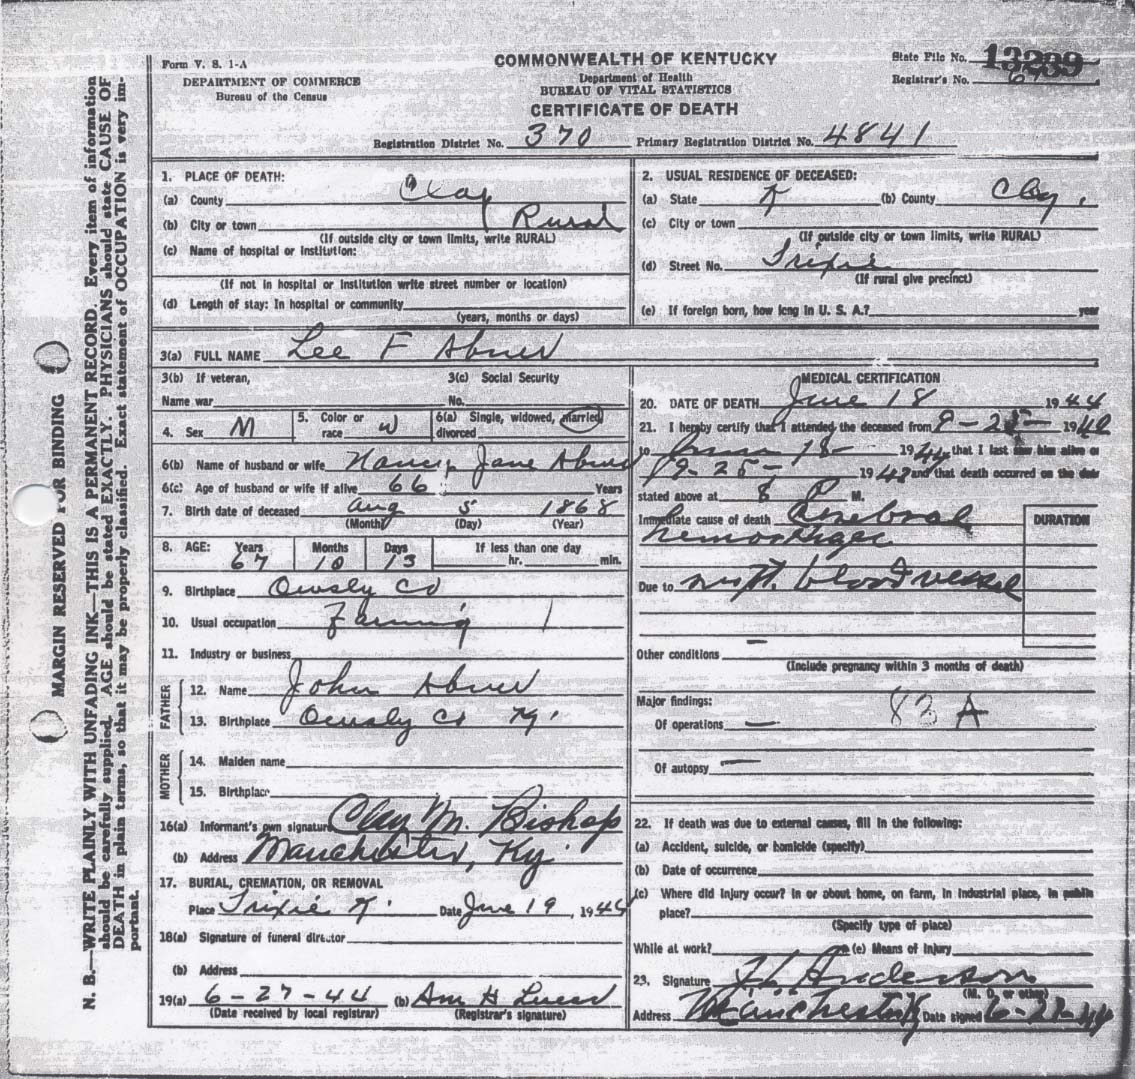 Form V. S. 1-A
DEPARTMENT OF COMMERCE
Bureau of the Census
COMMONWEALTH OF KENTUCKY
Department of Health
BUREAU OF VITAL STATISTICS
CERTIFICATE OF DEATH
State File No. 13239
Registrar's No.
Registration District No. 370 Primary Registration District No. 4841
MARGIN RESERVED FOR BINDING
N. B.—WRITE PLAINLY WITH UNFADING INK—THIS IS A PERMANENT RECORD. Every item of information
should be carefully supplied. AGE should be stated EXACTLY. PHYSICIANS should state CAUSE OF
DEATH in plain terms, so that it may be properly classified. Exact statement of OCCUPATION is very im-
portant.
1. PLACE OF DEATH:
(a) County Clay
(b) City or town Rural
(If outside city or town limits, write RURAL)
(c) Name of hospital or institution:
(If not in hospital or institution write street number or location)
(d) Length of stay: In hospital or community
(years, months or days)
2. USUAL RESIDENCE OF DECEASED:
(a) State K (b) County Clay.
(c) City or town
(If outside city or town limits, write RURAL)
(d) Street No. Trixie
(If rural give precinct)
(e) If foreign born, how long in U. S. A.? year
3(a) FULL NAME Lee F Abner
3(b) If veteran,
Name war
3(c) Social Security
No.
4. Sex M
5. Color or
race W
6(a) Single, widowed, married
divorced
6(b) Name of husband or wife Nancy Jane Abner
6(c) Age of husband or wife if alive 66 Years
7. Birth date of deceased Aug 5 1868
(Month) (Day) (Year)
8. AGE: Years Months Days If less than one day
67 10 13 hr. min.
9. Birthplace Owsly Co
10. Usual occupation Farming
11. Industry or business
FATHER
12. Name John Abner
13. Birthplace Owsly Co Ky.
MOTHER
14. Maiden name
15. Birthplace
16(a) Informant's own signature Clay M. Bishop
(b) Address Manchester, Ky.
17. BURIAL, CREMATION, OR REMOVAL
Place Trixie K. Date June 19, 1944
18(a) Signature of funeral director
(b) Address
19(a) 6-27-44 (b)
(Date received by local registrar) (Registrar's signature)
MEDICAL CERTIFICATION
20. DATE OF DEATH June 18 1944
21. I hereby certify that I attended the deceased from 9-25- 1940
to June 18- 1944 that I last saw him alive on
9-25- 1943 and that death occurred on the date
stated above at 8 P. M.
Immediate cause of death Cerebral
hemorrhage
DURATION
Due to rupt. blood vessel
Other conditions —
(Include pregnancy within 3 months of death)
Major findings: 83 A
Of operations —
Of autopsy —
22. If death was due to external causes, fill in the following:
(a) Accident, suicide, or homicide (specify)
(b) Date of occurrence
(c) Where did injury occur? In or about home, on farm, in industrial place, in public
place?
(Specify type of place)
While at work? (e) Means of Injury
23. Signature Anderson
(M. D. or other)
Address Manchester K Date signed 6-27-44